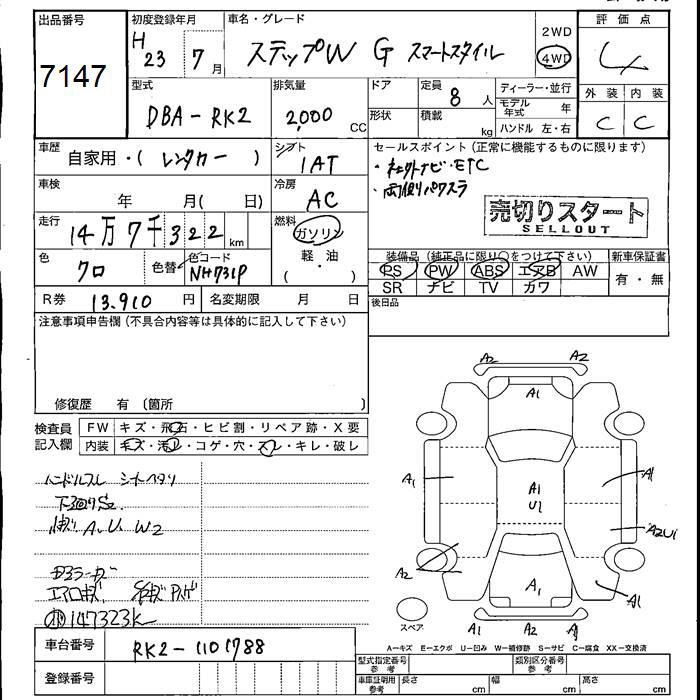 出品番号
7147
初度登録年月
H 23 7月
車名・グレード
ステップW G スマートスタイル
2WD
4WD
評価点
4
外装 内装
C C
型式
DBA-RK2
排気量
2,000 CC
ドア
形状
定員 8人
積載 kg
ディーラー・並行
モデル年式 年
ハンドル 左・右
車歴
自家用・( レンタカー )
シフト
1AT
セールスポイント(正常に機能するものに限ります)
・ETC
・両側パワスラ
売切りスタート
SELLOUT
車検
年 月( 日)
冷房
AC
走行
14万7千322km
燃料
ガソリン
軽・油
( )
色
クロ
色替
色コード
NH731P
装備品(純正品に限り○をつけて下さい)
PS PW ABS エアB AW
SR ナビ TV カワ
新車保証書
有・無
R券 13,910 円
名変期限 月 日
後日品
注意事項申告欄(不具合内容等は具体的に記入して下さい)
修復歴 有 〔箇所 〕
検査員記入欄
FW キズ・飛石・ヒビ割・リペア跡・X要
内装 キズ・汚れ・コゲ・穴・スレ・キレ・破レ
ハンドルスレ シートヘタリ
下回りS2
A.U.W2
エアロキズ
147323k
A2 A2
A1
A1
A1
A1
U1
A2U1
A2
A1
A1
A1 A2 A1
スペア
A-キズ E-エクボ U-凹み W-補修跡 S-サビ C-腐食 XX-交換済
車台番号
RK2-1101788
登録番号
型式指定番号 参考
類別区分番号 参考
車庫証明用 参考
長さ cm
幅 cm
高さ cm